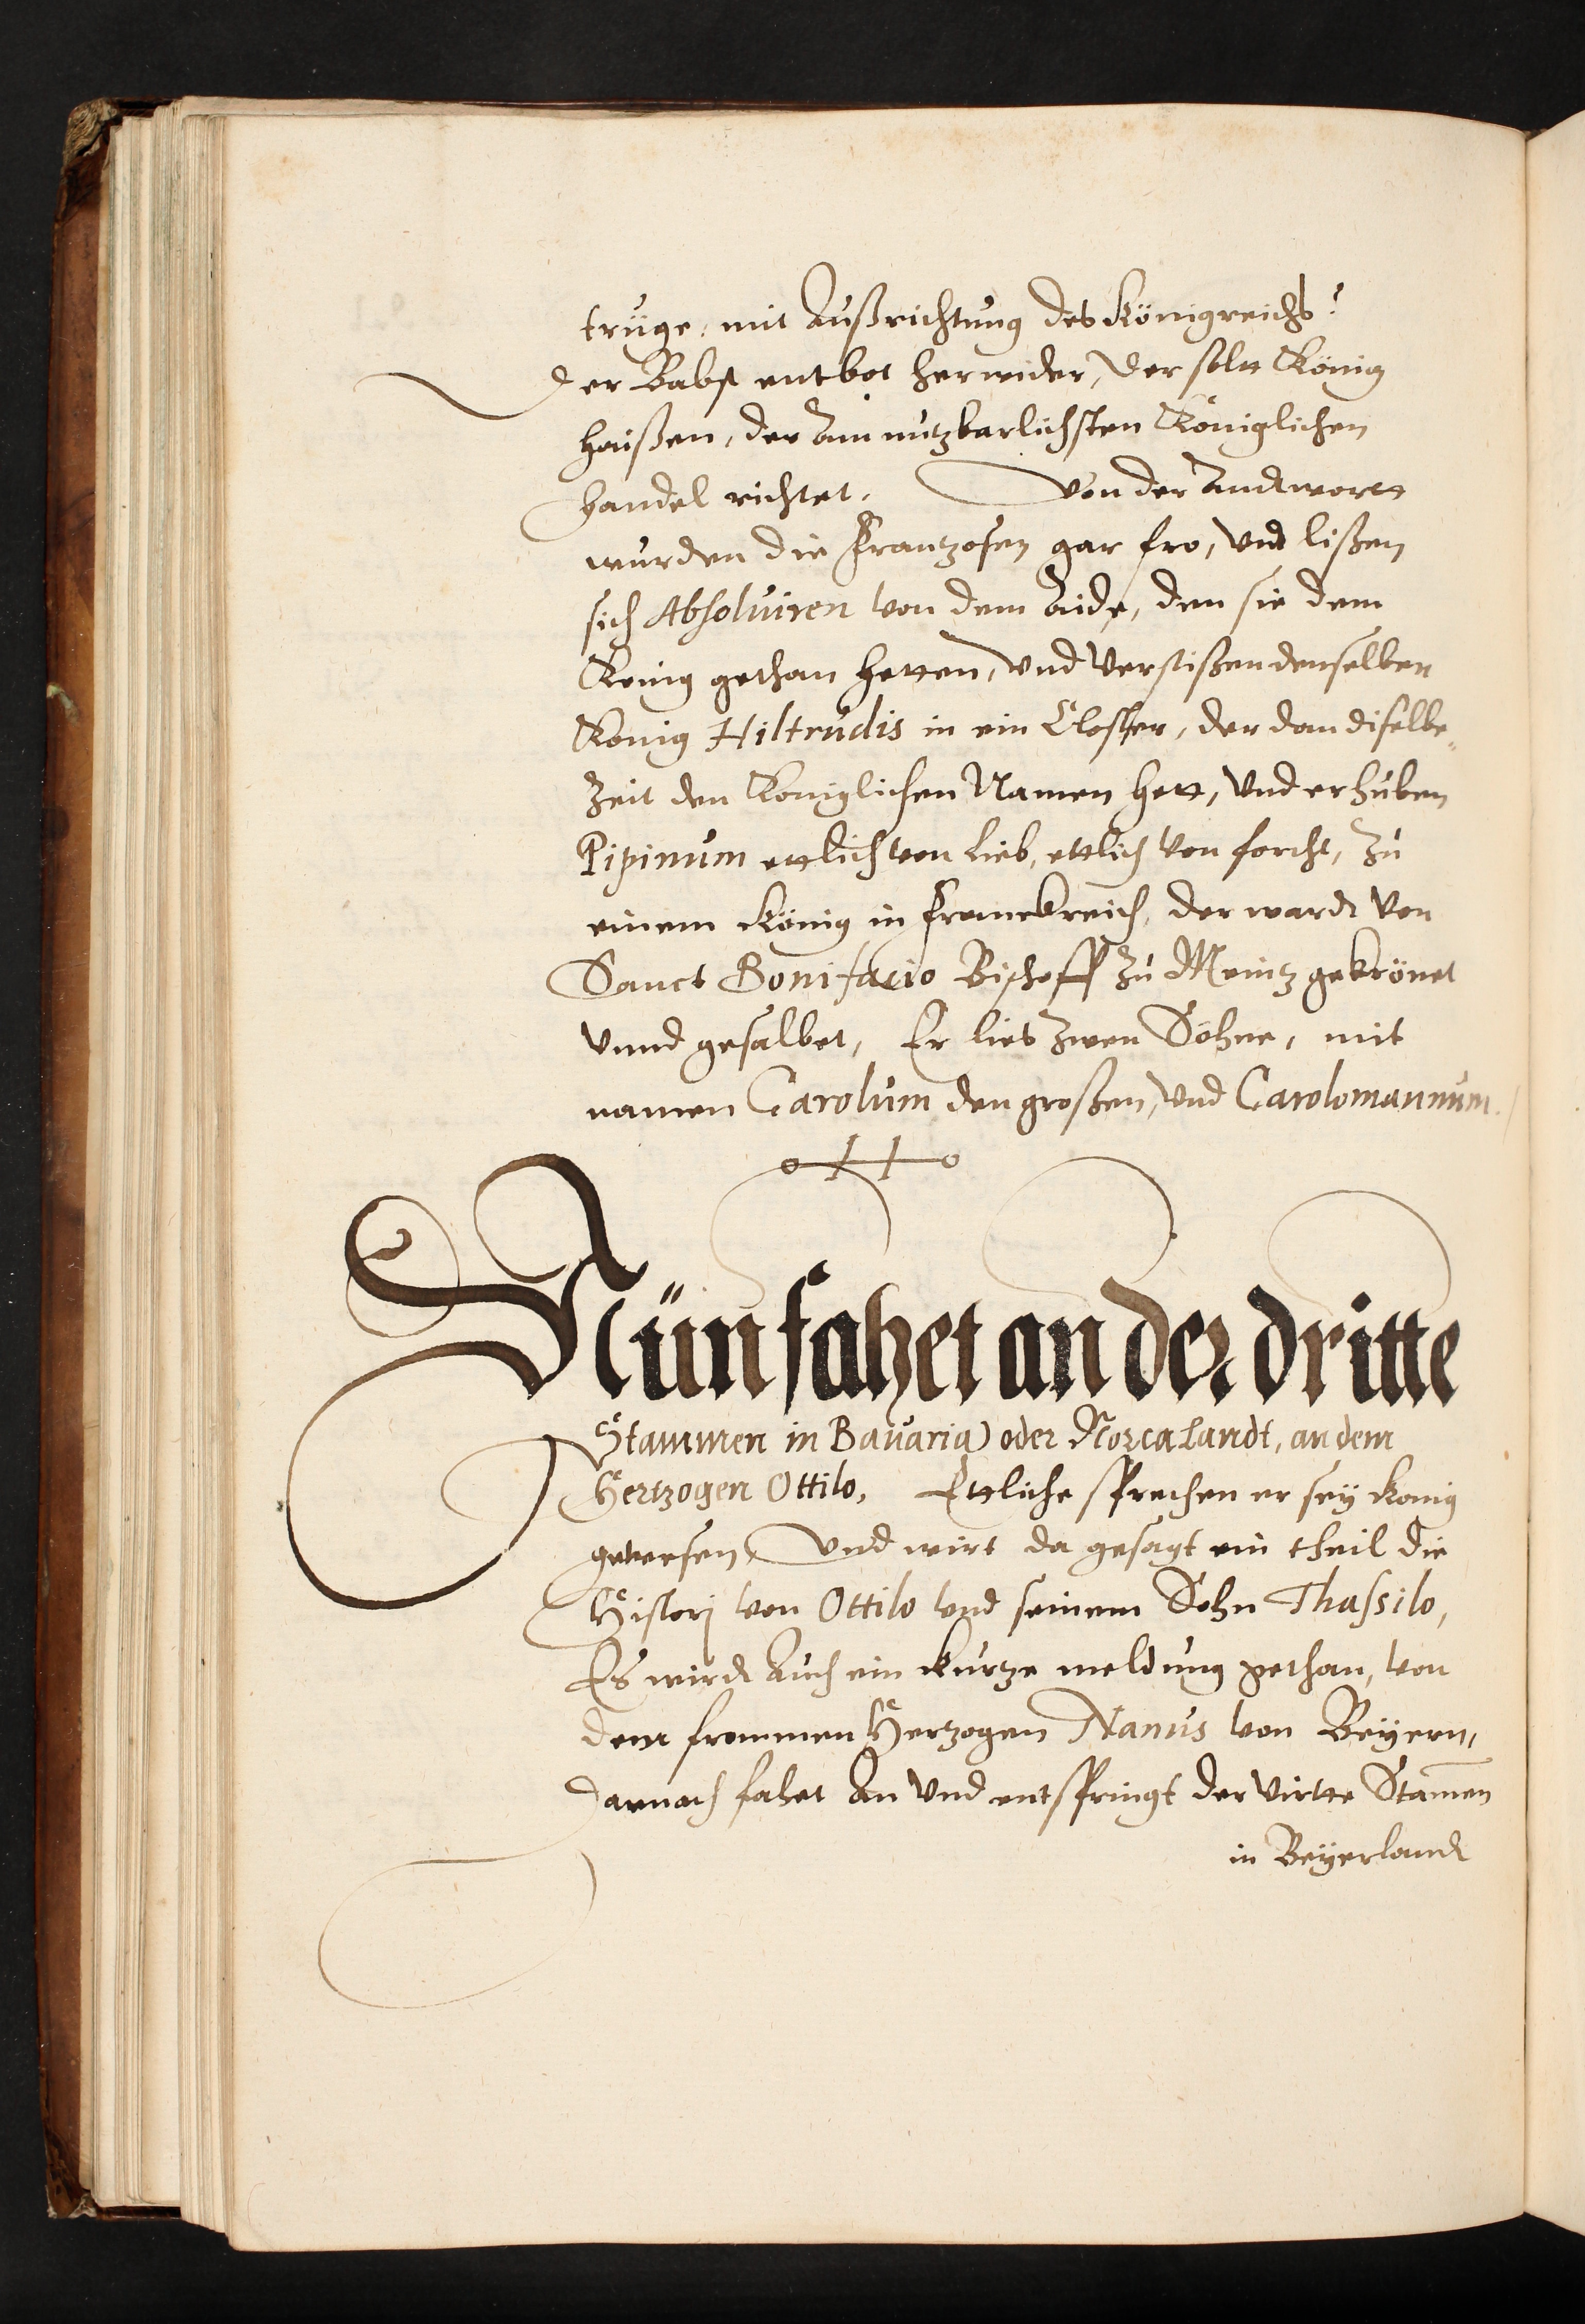 trüge, mit Außrichtung des Königreichs?
der Babst entbot herwider, der solte König
heißen, der am nutzbarlichsten Königlichen
handel richtet. Von der Andtwortt
wurden die Frantzosen gar fro, vnd lißen
sich Absoluiren von dem Aide, den sie dem
König gethan hetten, vnd verstißen denselben
König Hiltrudis in ein Closter, der dan diselbe
Zeit den Königlichen Namen hett, vnd erhuben
Pipinum ettlich von Lieb, ettlich von forcht, zu
einem König in Franckreich, der wardt von
Sanct Bonifacio Bischoff zu Meintz gekrönet
vnnd gesalbet, Er lies zwen Söhne, mit
namen Carolum den großen, vnd Carolomannum.
Nün fahet an der dritte
Stammen in Bauaria oder Norcalandt, an dem
Hertzogen Ottilo, Ettliche sprechen er sey König
gewesen, Vnd wirt da gesagt ein theil die
Histori von Ottilo vnd seinem Sohn Thassilo,
Es wirdt Auch ein kurtze meldung gethan, von
dem frommen Hertzogen Namus von Beyern,
darnach fahet An vnd entspringt der virtte Stam̄en
in Beyerlandt